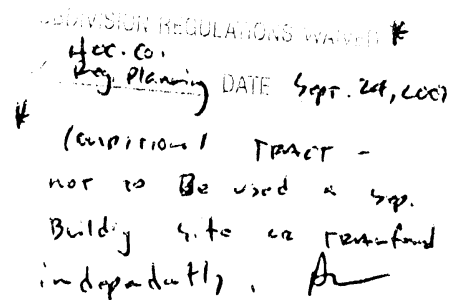 SUBDIVISION REGULATIONS WAIVER *
Hoc. Co.
Reg. Planning DATE Sept. 24, 2007
*
Conditional TRACT -
not to Be used as sep.
Building site or Transferred
independently.